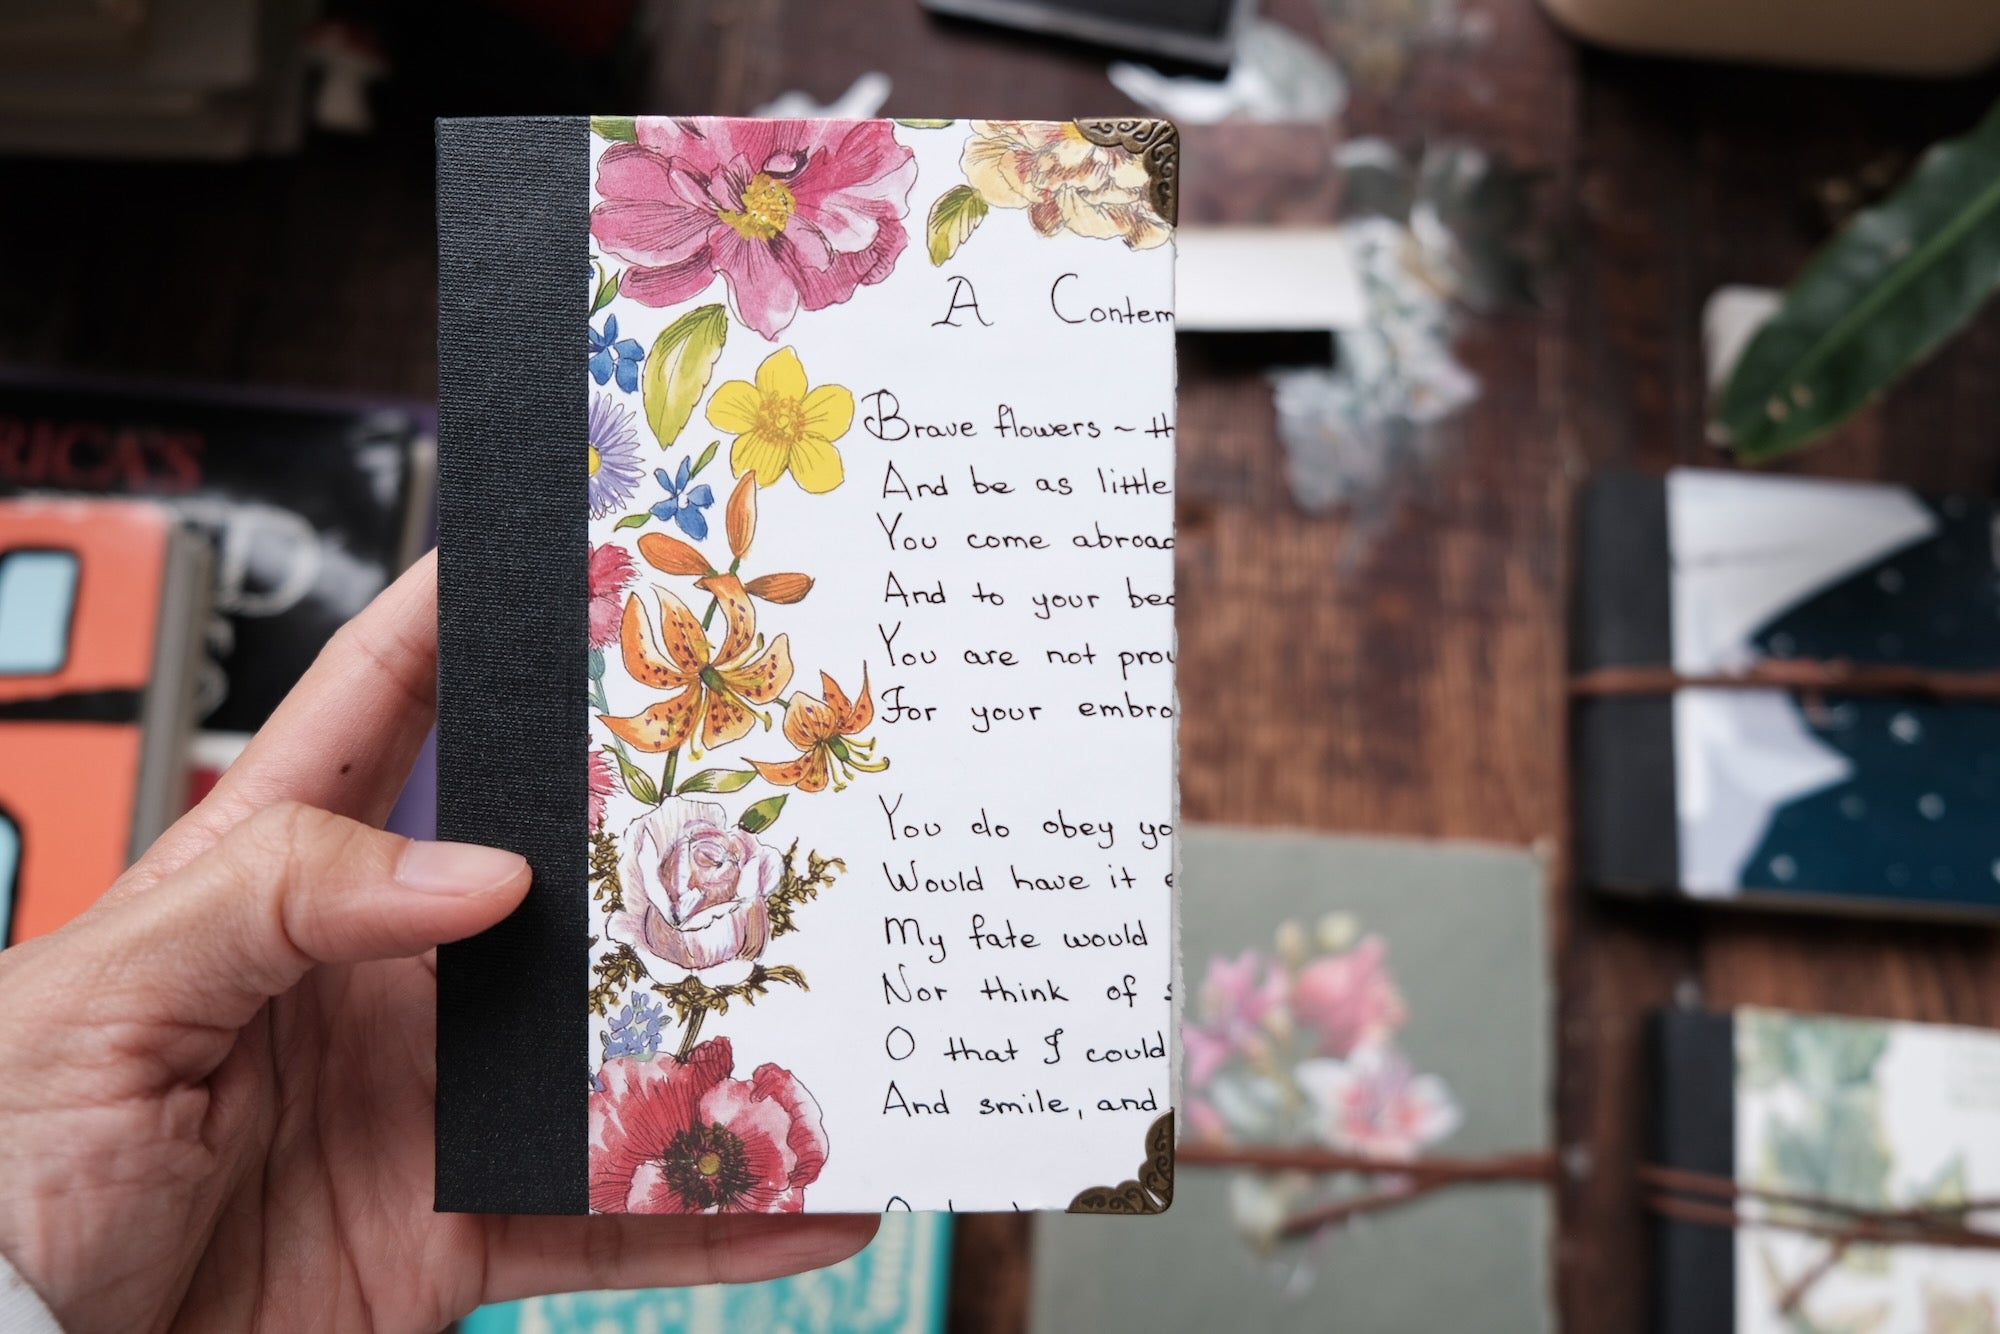 A Contem
Brave flowers ~ th
And be as little
You come abroad
And to your bea
You are not prou
For your embro
You do obey yo
Would have it e
My fate would
Nor think of s
O that I could
And smile, and
RICA'S